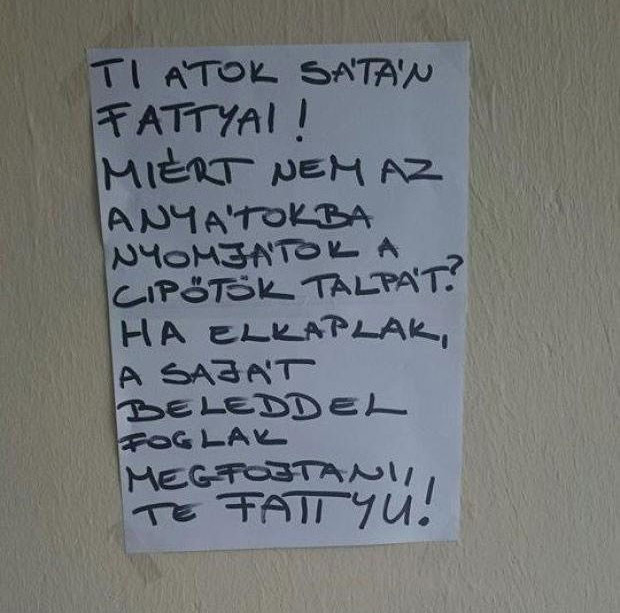 TI ÁTOK SÁTÁN
FATTYAI!
MIÉRT NEM AZ
ANYÁTOKBA
NYOMJÁTOK A
CIPŐTÖK TALPÁT?
HA ELKAPLAK,
A SAJÁT
BELEDDEL
FOGLAK
MEGFOJTANI,
TE FATTYU!